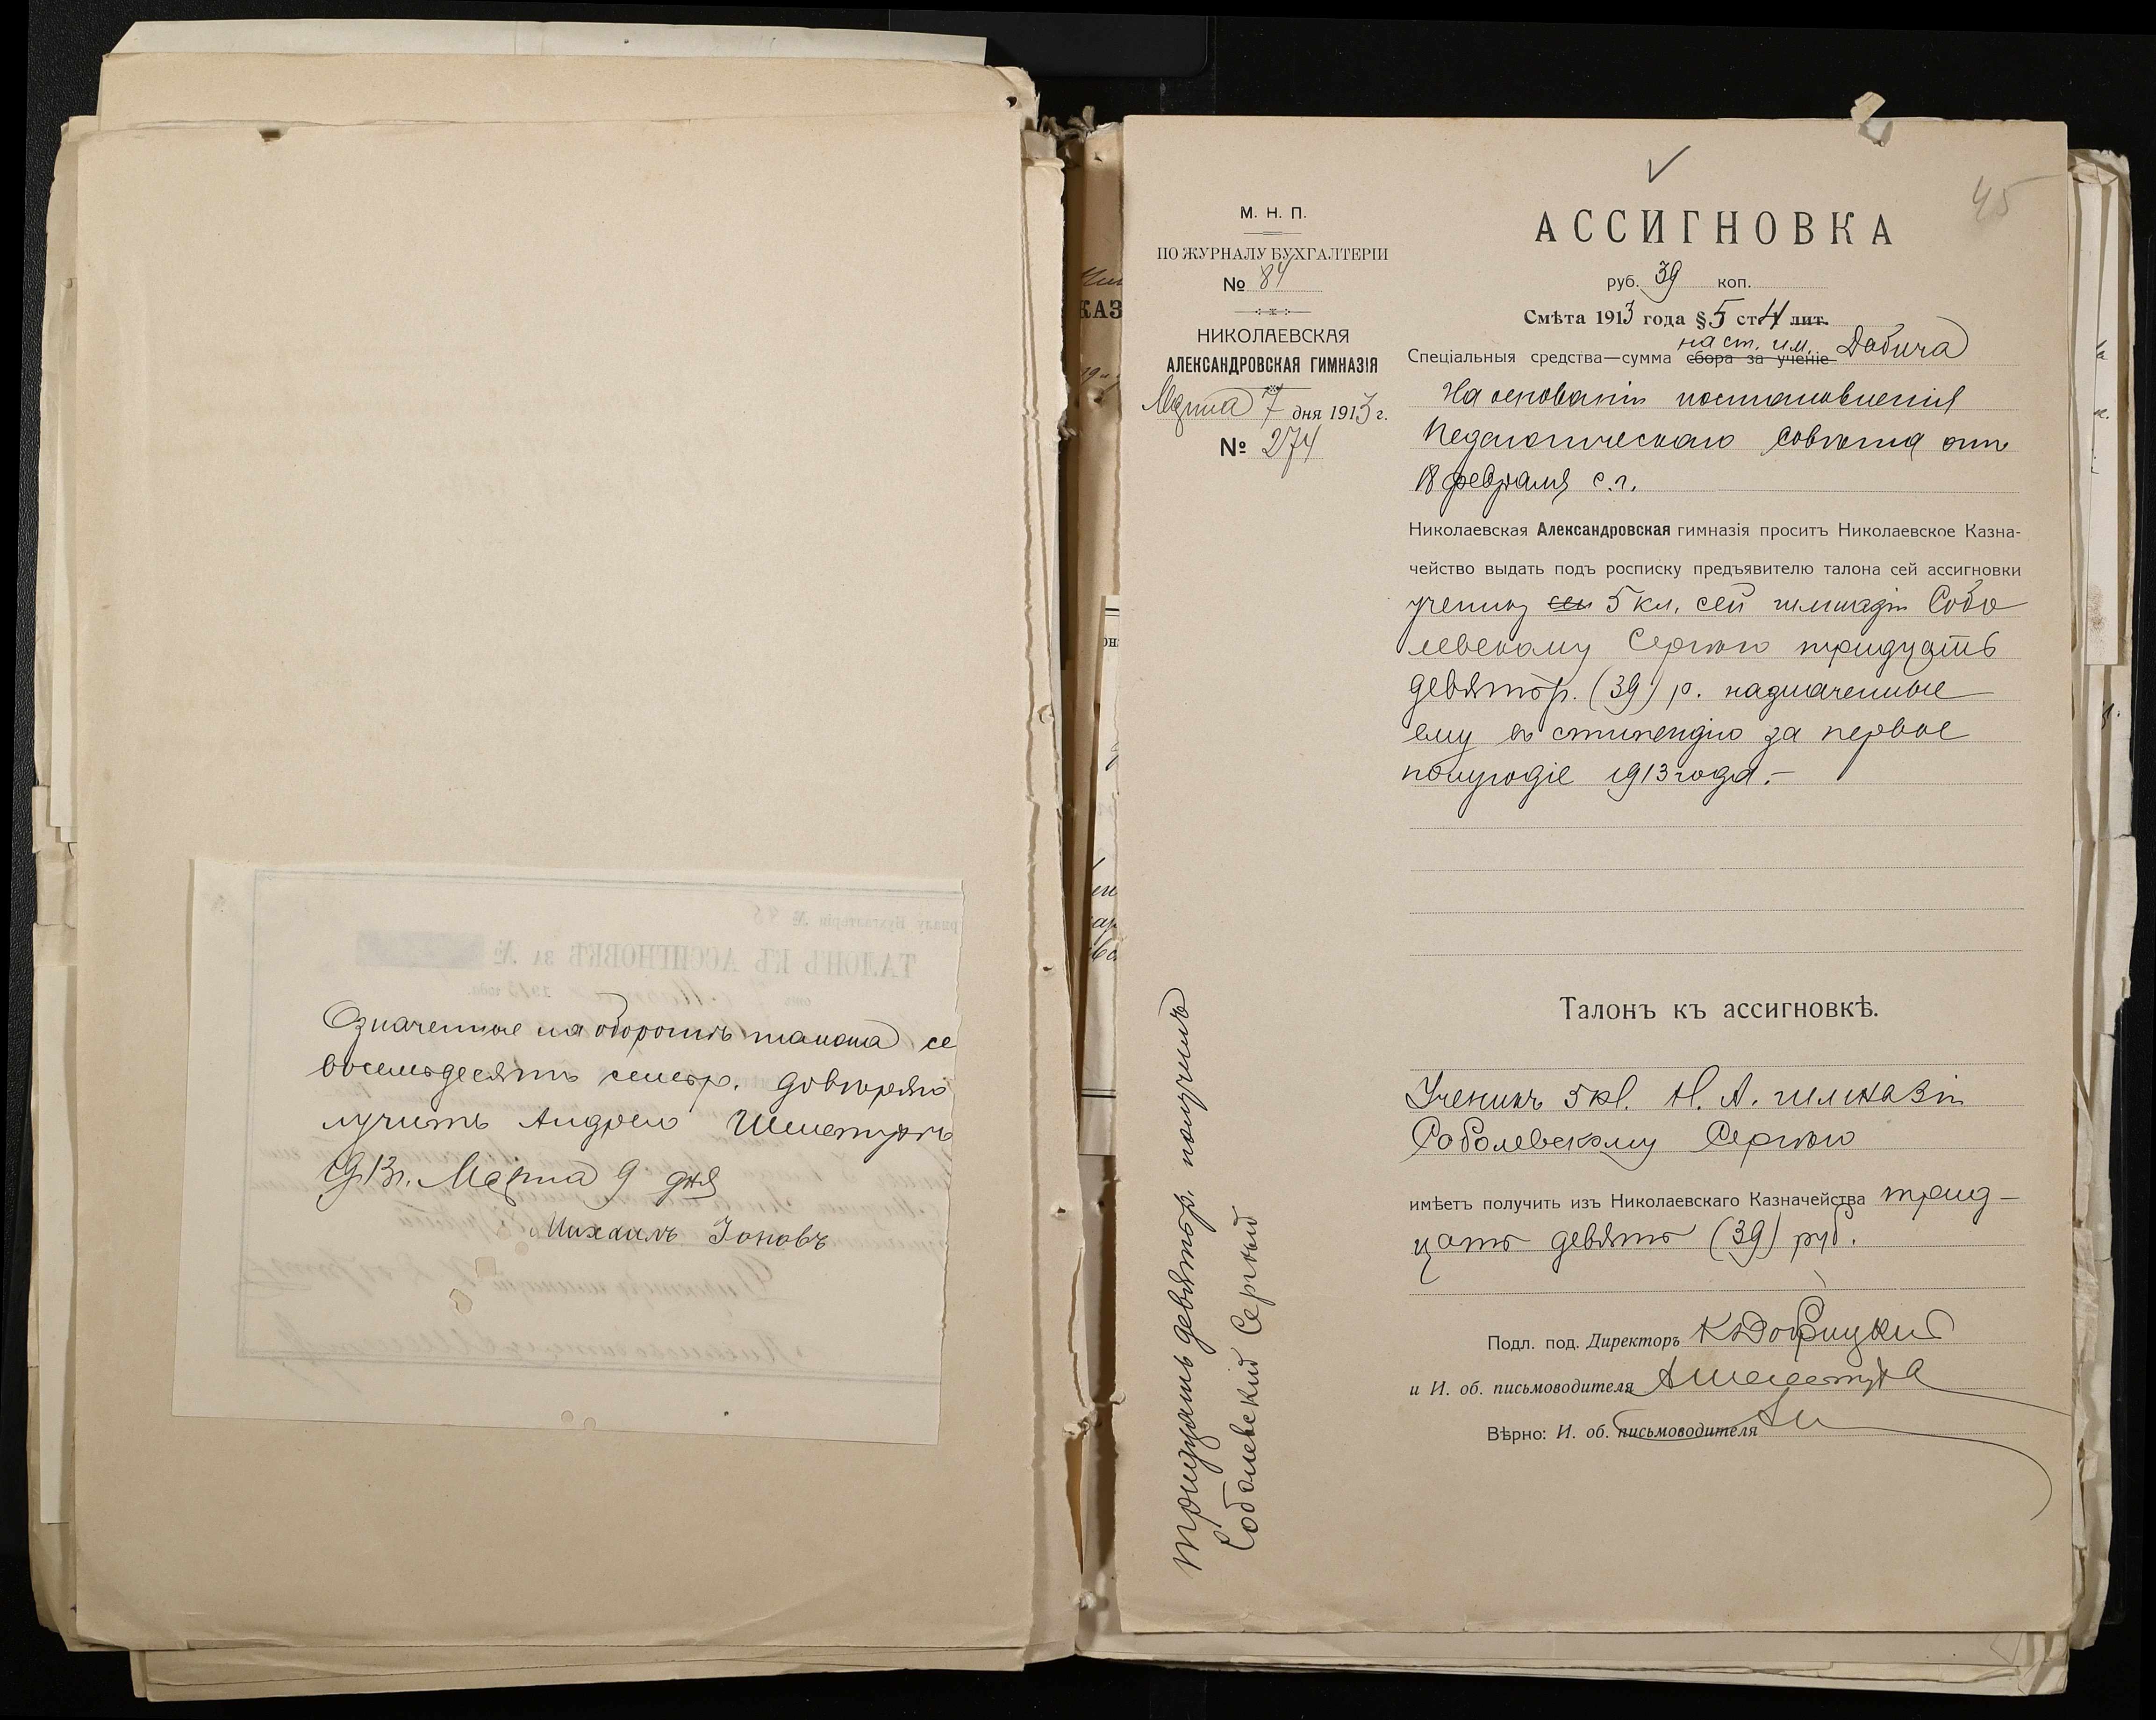 Означенные на оборотѣ талона се
восемьдесятъ семь р. довѣряю
лучить Андрею Шелестури
1913 г. Марта 9 дня
Михаилъ Іоновъ
45
М. Н. П.
ПО ЖУРНАЛУ БУХГАЛТЕРІИ
№ 84
НИКОЛАЕВСКАЯ
АЛЕКСАНДРОВСКАЯ ГИМНАЗІЯ
Марта 7 дня 1913 г.
№ 274
АССИГНОВКА
руб. 39 коп.
Смѣта 1913 года § 5 ст. 4 лит.
на ст. им. Дабича
Спеціальныя средства—сумма сбора за ученіе
На основаніи постановленія
Педагогическаго Совѣта отъ
18 февраля с. г.
Николаевская Александровская гимназія проситъ Николаевское Казна-
чейство выдать подъ росписку предъявителю талона сей ассигновки
ученику сей 5 кл. сей гимназіи Собо
левскому Сергѣю тридцать
девять р. (39) р. назначенные
ему въ стипендію за первое
полугодіе 1913 года.-
Талонъ къ ассигновкѣ.
Ученикъ 5 кл. Н. А. гимназіи
Соболевскому Сергѣю
имѣетъ получить изъ Николаевскаго Казначейства трид-
цать девять (39) руб.
Подл. под. Директоръ К Добицкій
и И. об. письмоводителя
Вѣрно: И. об. письмоводителя
тридцать девять р. получилъ
Соболевскій Сергѣй
ТАЛОНЪ КЪ АССИГНОВКѢ ЗА №